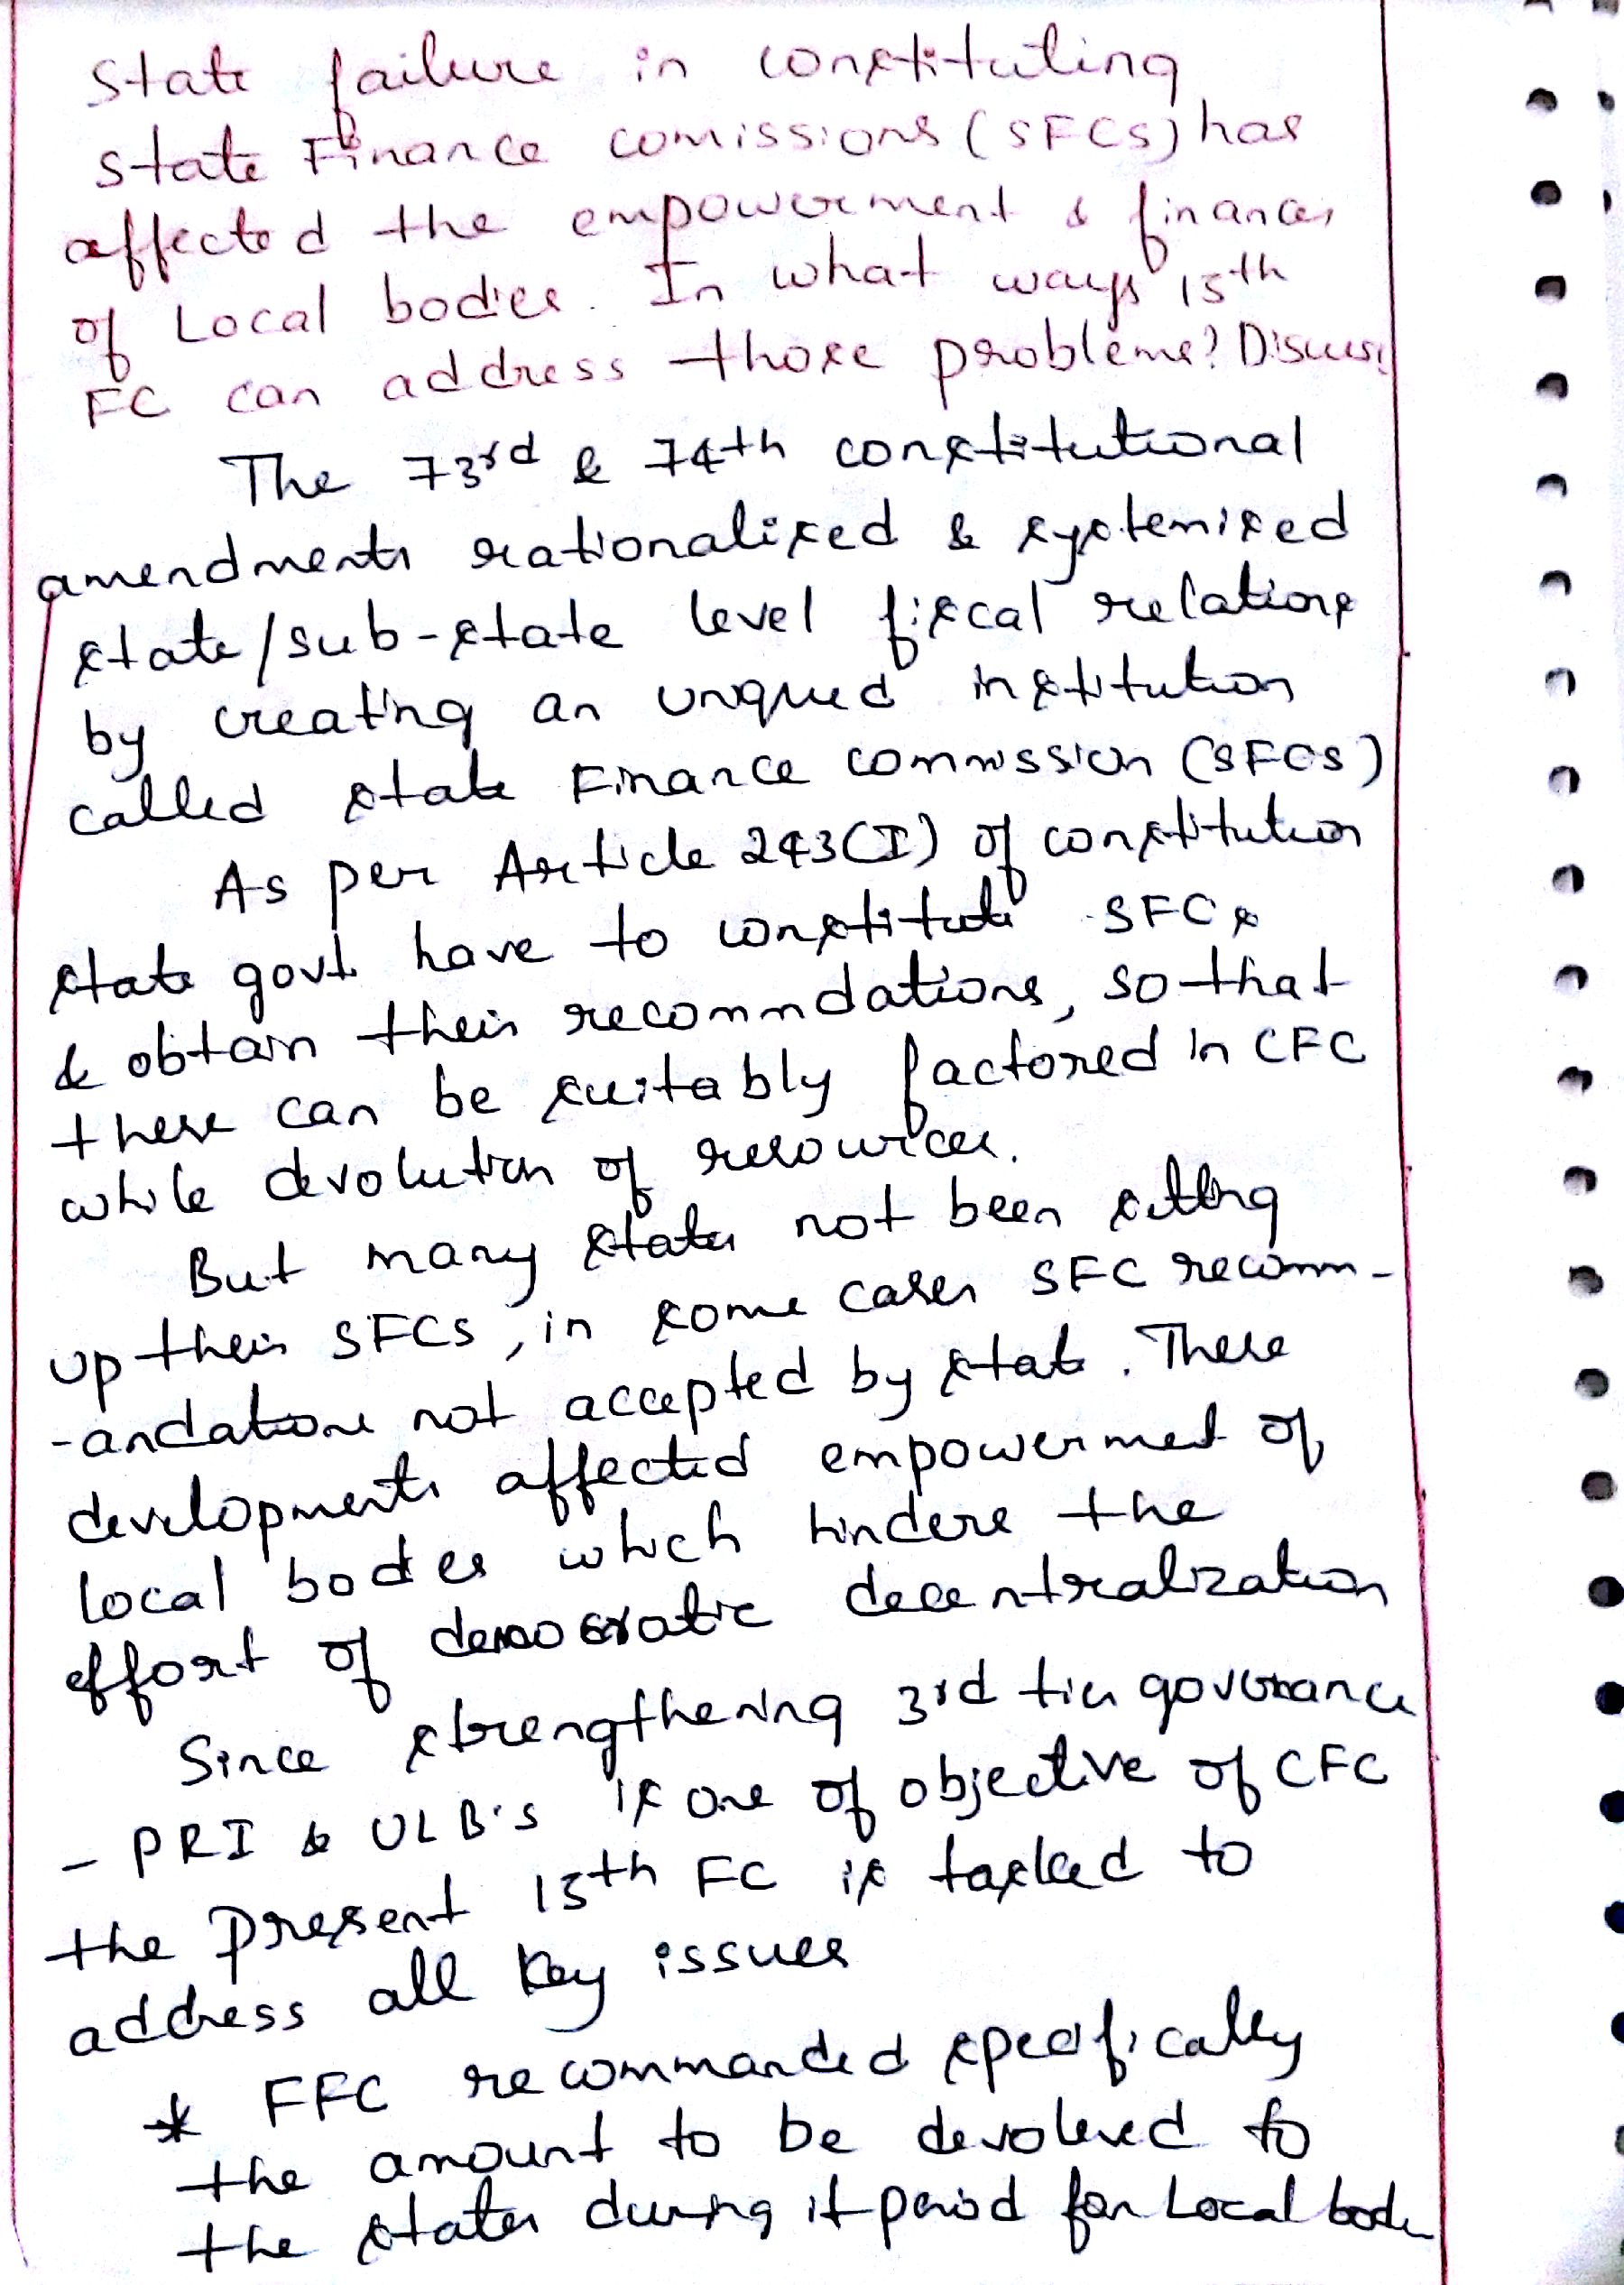 State failure in constituting
State Finance comissions (SFCs) has
affected the empowerment & finances
of Local bodies. In what ways 15th
FC can address those problems? Discuss
The 73rd & 74th constitutional
amendments rationalised & systemised
state/sub-state level fiscal relations
by creating an unqued institution
called state Finance commission (SFCs)
As per Article 243(I) of constitution
state govt. have to constitute SFCs
& obtain their recommdations, so that
these can be suitably factored in CFC
while devolution of resources.
But many states not been setting
up their SFCs, in some cases SFC recomm-
-andations not accepted by state. These
developments affected empowerment of
local bodies which hinders the
effort of democratic decentralization
Since strengthening 3rd tier governance
- PRI & ULB's is one of objective of CFC
the present 15th FC is tasked to
address all key issues
* FFC recommanded specifically
the amount to be devoleved to
the states during it period for Local bodies